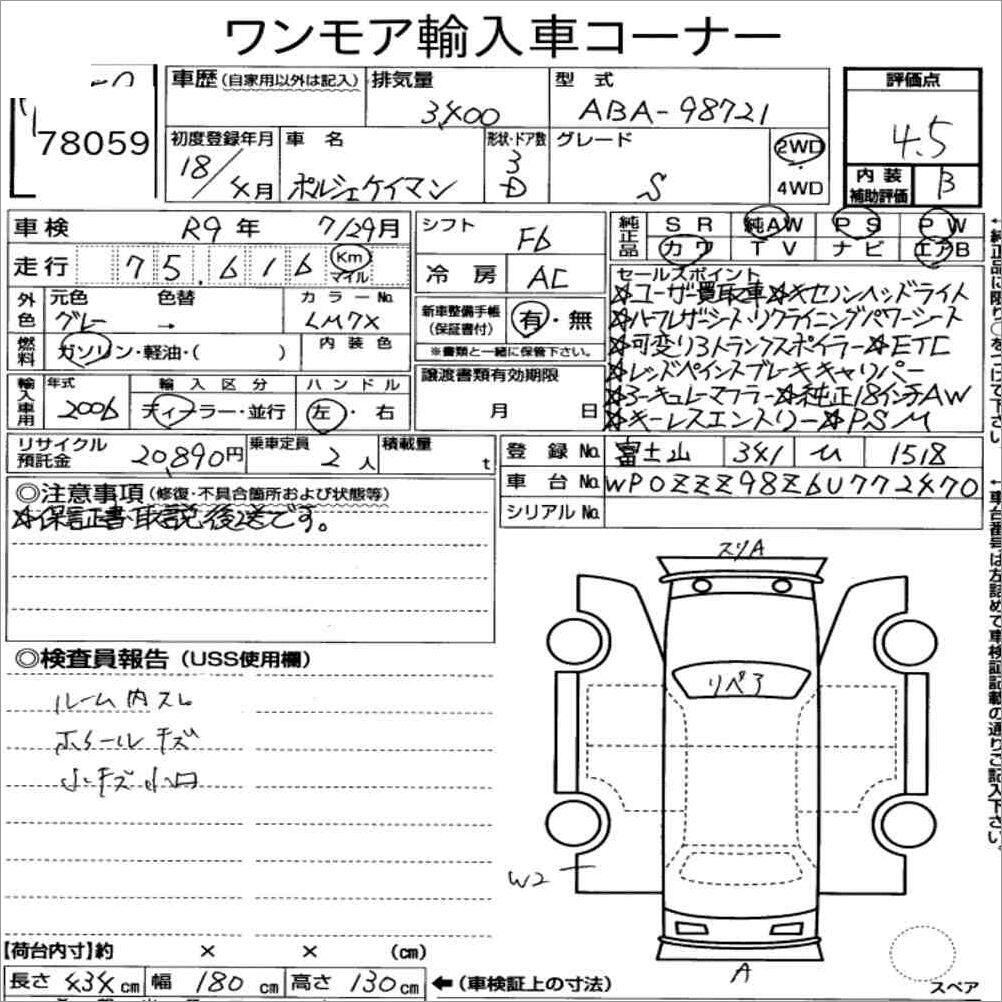 ワンモア輸入車コーナー
78059
車歴 (自家用以外は記入) 排気量 型式 評価点
3,400 ABA-98721 4.5
初度登録年月 車名 形状・ドア数 グレード 2WD
18/4月 ポルシェケイマン 3 D S 4WD
内装補助評価 B
車検 R9年 7/29月 シフト F6 純正品 SR 純AW PS PW
走行 75,616 Km マイル 冷房 AC カワ TV ナビ エアB
外色 元色 色替 カラーNo.
グレー → LM7X
新車整備手帳(保証書付) 有・無
※書類と一緒に保管下さい。
燃料 ガソリン・軽油・( ) 内装色
輸入車用 年式 輸入区分 ハンドル 譲渡書類有効期限
2006 ディーラー・並行 左・右 月 日
セールスポイント
☆ユーザー買取車☆キセノンヘッドライト
☆ハーフレザーシート・リクライニングパワーシート
☆可変リヤトランクスポイラー☆ETC
☆レッドペイントブレーキキャリパー
☆スポーツマフラー☆純正18インチAW
☆キーレスエントリー☆PSM
リサイクル預託金 20,890円 乗車定員 2人 積載量 t
登録No. 富士山 341 1518
車台No. WP0ZZZ98Z6U772470
シリアルNo.
◎注意事項 (修復・不具合箇所および状態等)
☆保証書・取説後送です。
◎検査員報告 (USS使用欄)
ルーム内スレ
ホイールキズ
小キズ小凹
スリA
リペア
W2
A
スペア
【荷台内寸】約 × × (cm)
長さ 434cm 幅 180cm 高さ 130cm ←(車検証上の寸法)
←純正品に限り○をつけて下さい。
←車台番号は左詰めで車検証記載の通りご記入下さい。